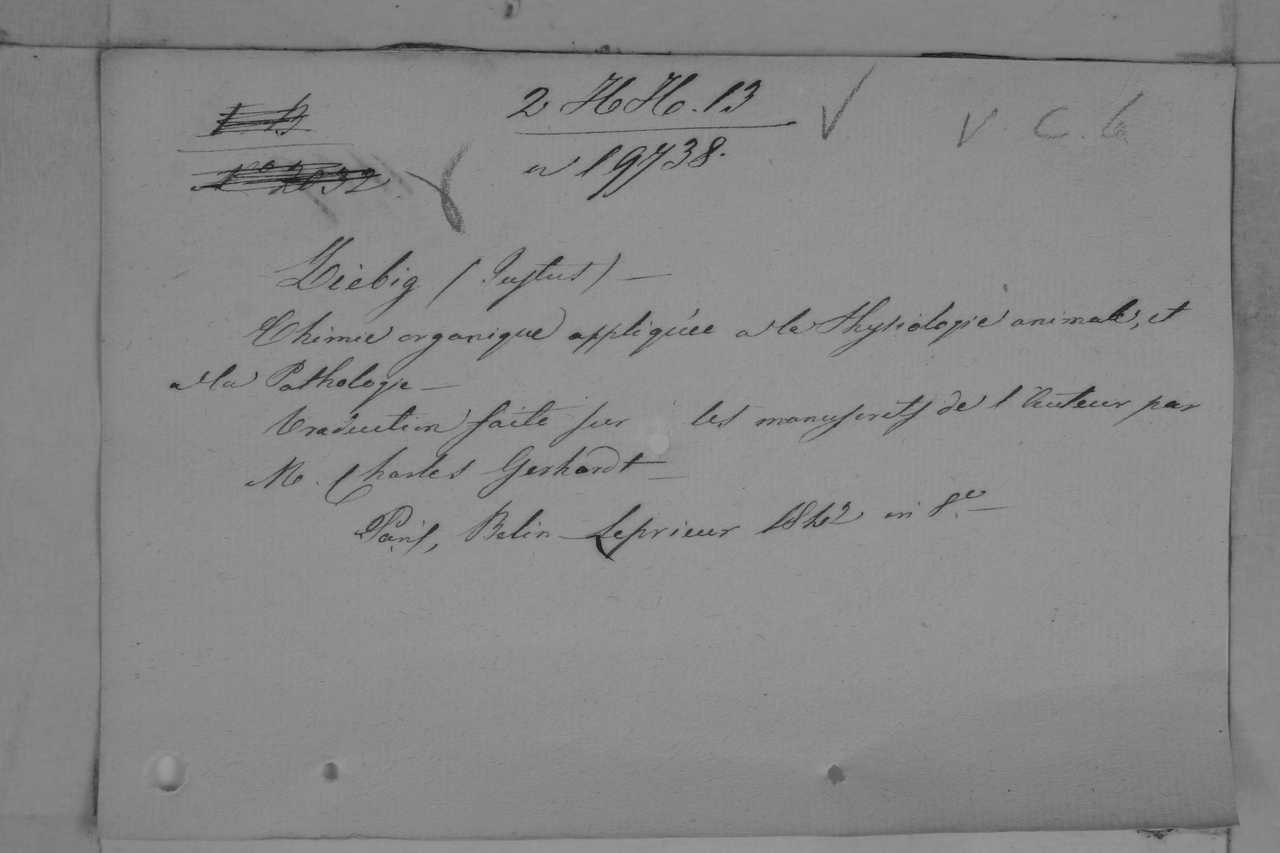 2 HH. 13
n 19738.
V V. C. 6
N° 2032
Liebig (Justus) —
Chimie organique appliquée a la Physiologie animale, et
a la Pathologie —
traduction faite sur les manuscrits de l'Auteur par
M. Charles Gerhardt —
Paris, Belin-Leprieur 1842 in 8.° —